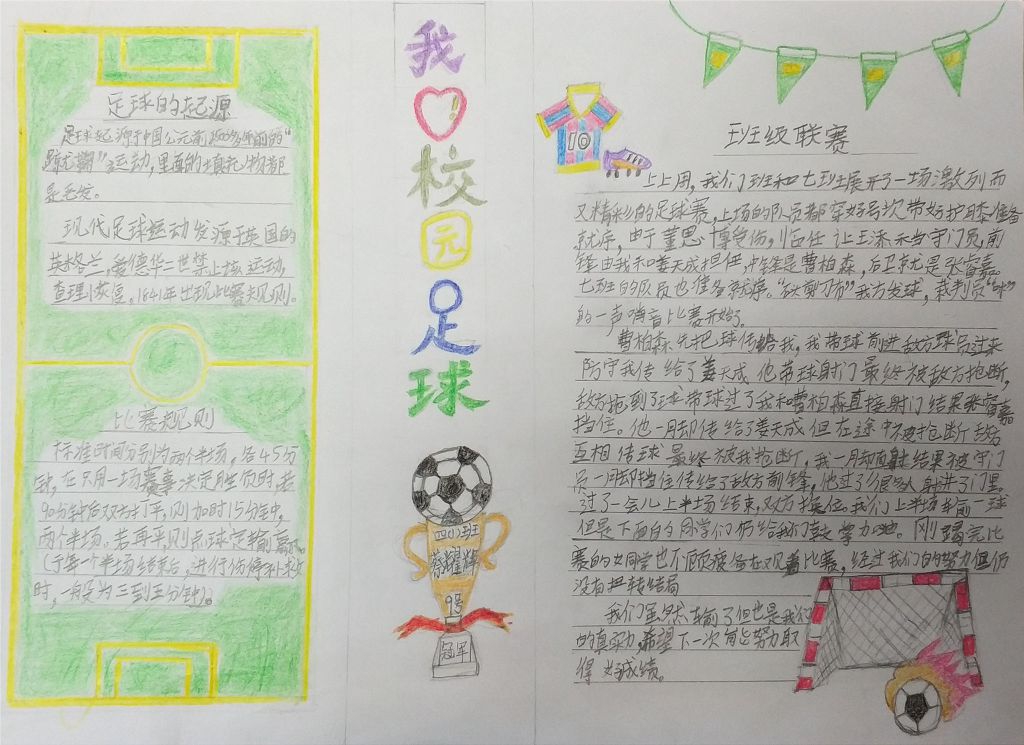 足球的起源
足球起源于中国公元前
运动,里面的填充物都
是毛发。
现代足球运动发源于英国的
英格兰,爱德华三世禁止该运动,
查理二恢复。1841年出现比赛规则。
比赛规则
标准时间分别为两个半场,各45分
钟,在只用一场赛事决定胜负时,若
90分钟后双方打平,则加时15分钟,
两个半场。若再平,则点球定输赢。
(于每个半场结束后,进行伤停补时
时,一般为三到五分钟)。
我
校
园
足
球
四(1)班
蔡耀辉
9号
冠军
10
班级联赛
上上周,我们班和七班展开了一场激烈而
又精彩的足球赛,上场的队员都穿好号坎带好护膝准备
就序,由于董思博受伤,临任让王添示当守门员,前
锋由我和姜天成担任,中锋是曹柏森,后卫就是张睿嘉。
七班的队员也准备就序。“石头剪刀布”我方发球,裁判员“咻”
的一声哨音比赛开始了。
曹柏森先把球传给我,我带球前进敌方球员过来
防守我传给了姜天成他带球射门最终被敌方抢断,
敌方抢到了球带球过了我和曹柏森直接射门结果张睿嘉
挡住。他一脚传给了姜天成但在途中被抢断敌方
互相传球最终被我抢断,我一脚射结果被守门
员一脚挡住传给了敌方前锋,他过了很多人射进了门里
过了一会儿上半场结束,双方换位。我们上半场输一球
但是下面的同学们仍给我们鼓掌力呐。刚踢完比
赛的女同学也不顾疲倦在观着比赛,经过我们的努力但仍
没有扭转结局
我们虽然输了但也是我们
的真实力,希望下一次能努力取
得好成绩。